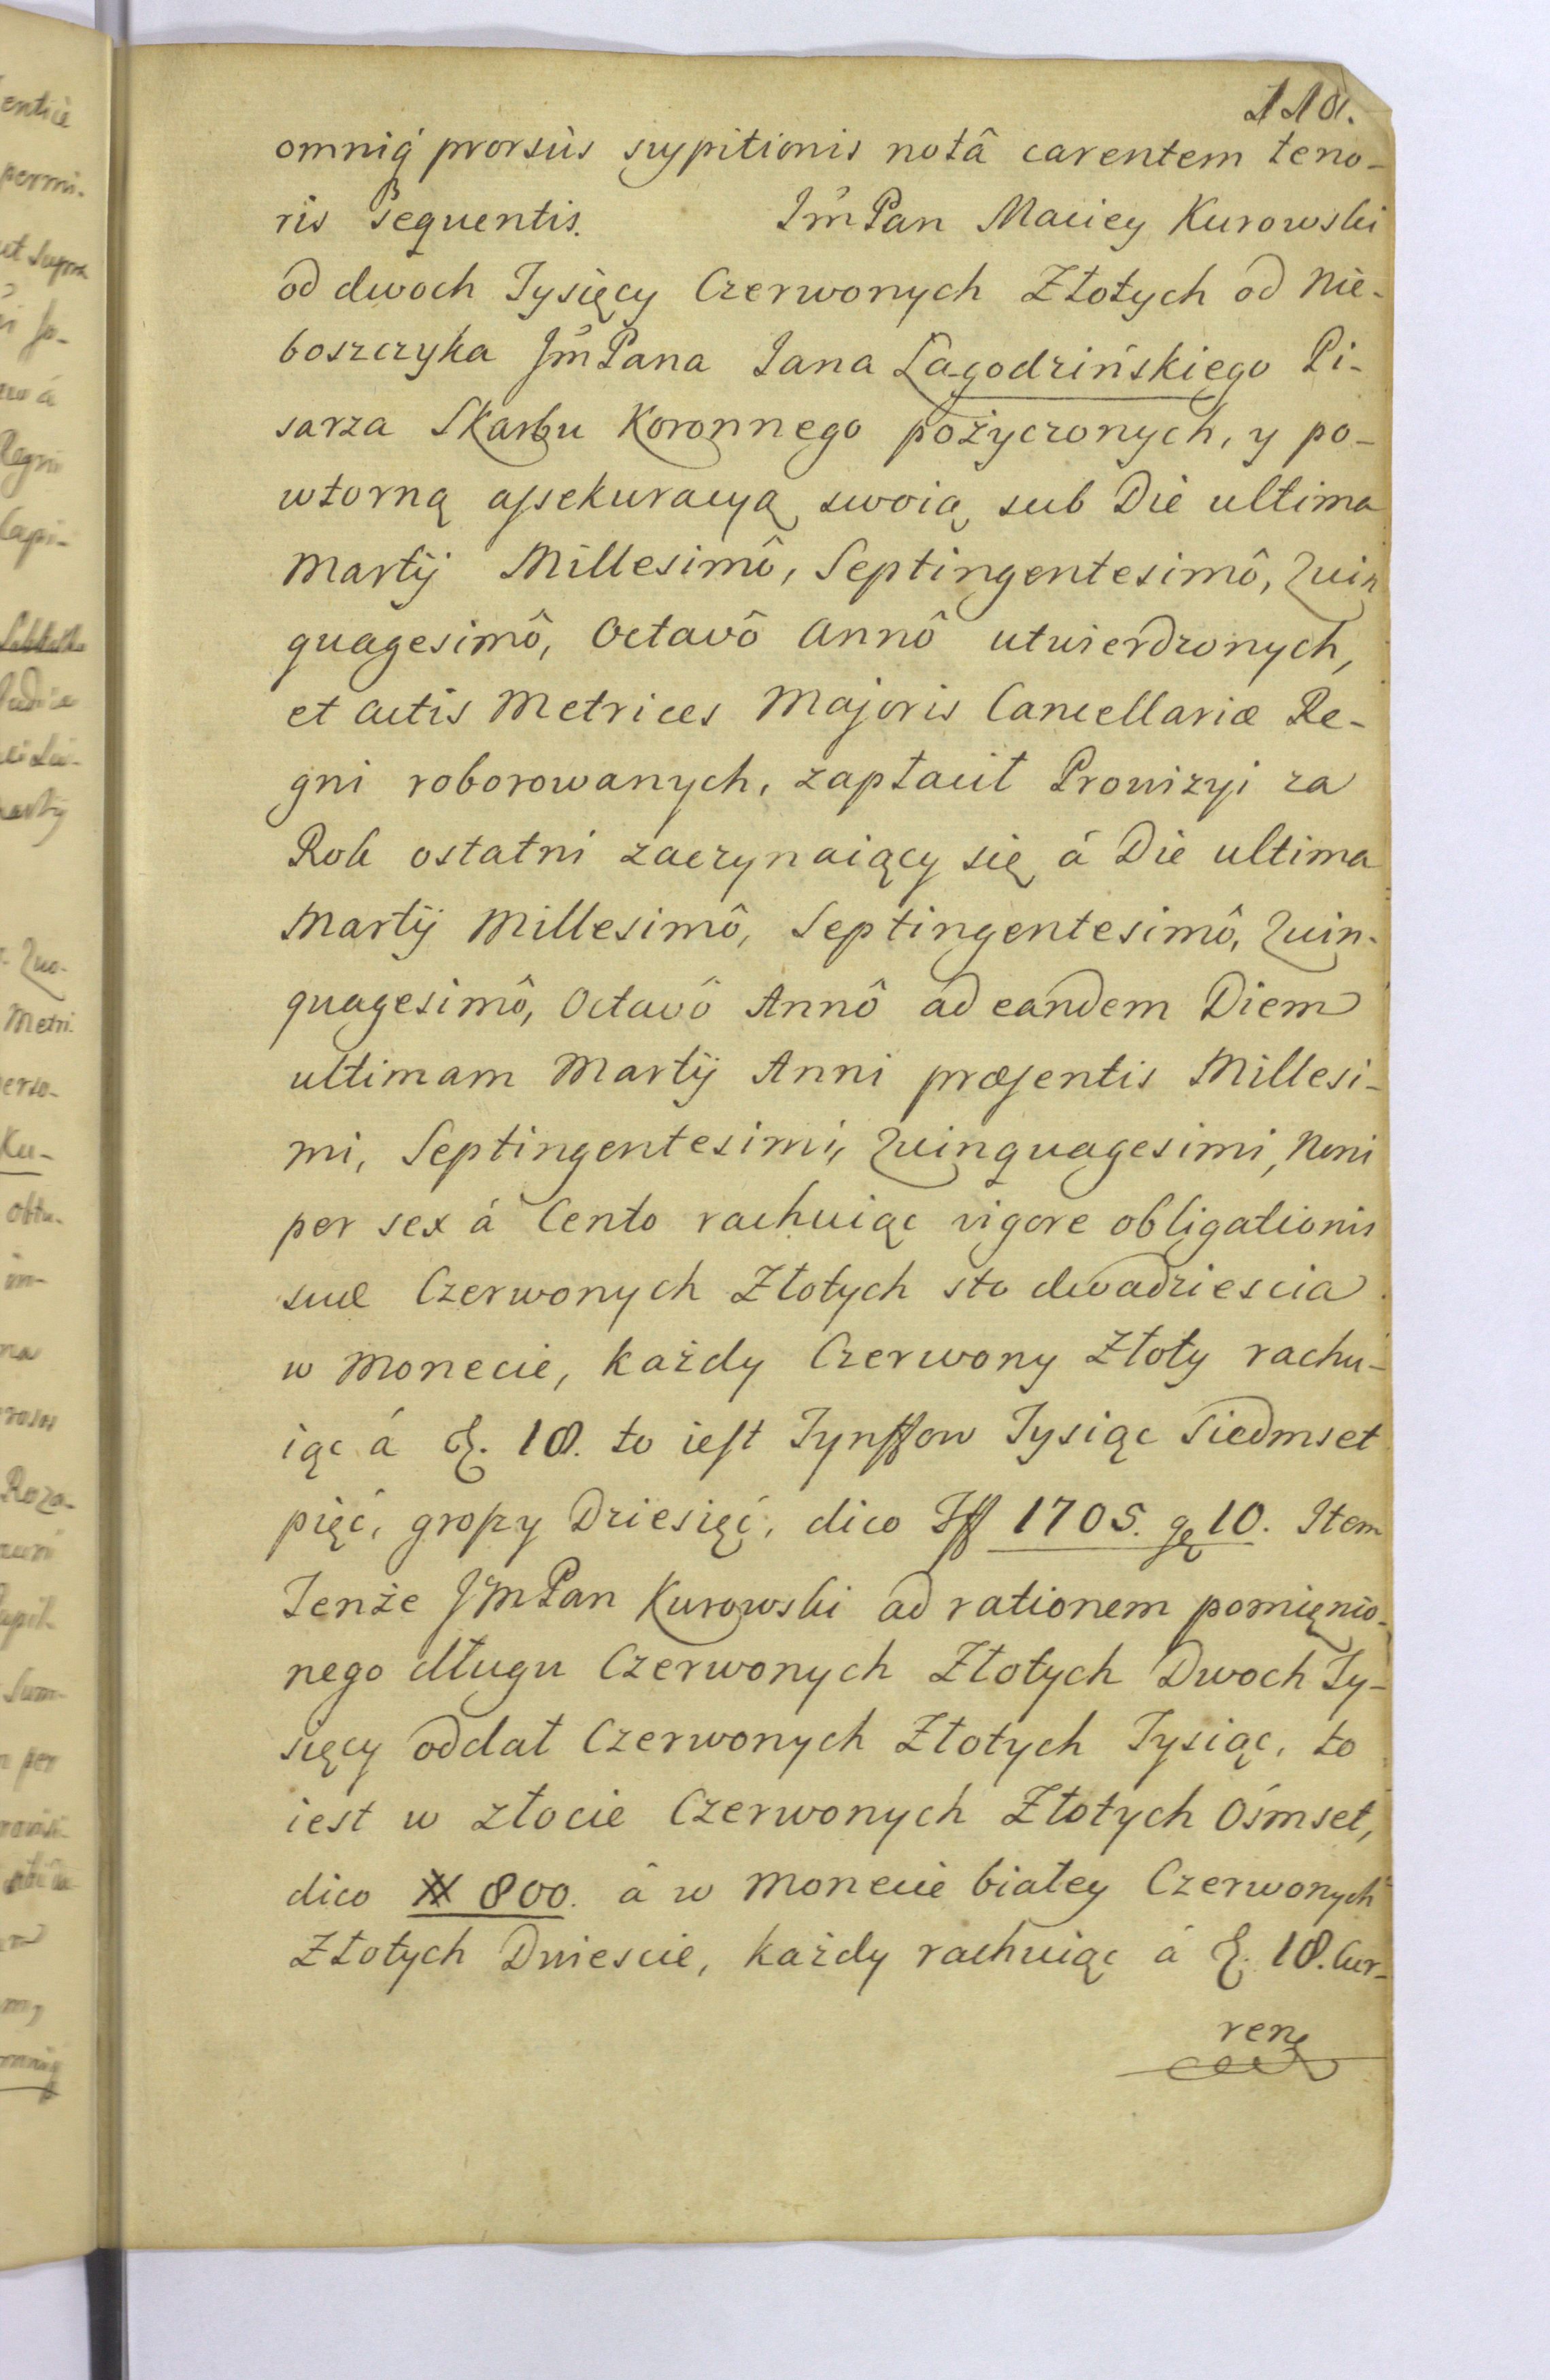 118.
omniq́ prorsùs suspitionis notâ carentem teno-
ris sequentis. JmPan Maciey Kurowski
od dwoch Tysięcy Czerwonych Złotych od Nie-
boszczyka JmPana Jana Łagodzińskiego Pi-
sarza Skarbu Koronnego pożyczonych, y po-
wtorną assekuracyą swoią sub Die ultima
Martij Millesimô, Septingentesimô, Quin
quagesimô, Octavô Annô utwierdzonych,
et Actis Metrices Majoris Cancellariæ Re-
gni roborowanych, zapłacił Prowizyi za
Rok ostatni zaczynaiący się á Die ultima
Martij Millesimô, Septingentesimô, Quin-
quagesimô, Octavô Annô ad eandem Diem
ultimam Martij Anni præsentis Millesi-
mi, Septingentesimi, Quinquagesimi, Noni
per sex á Cento rachuiąc vigore obligationis
suæ Czerwonych Złotych sto dwadziescia
w Monecie, każdy Czerwony Złoty rachu-
iąc á 18. to iest Tynffow Tysiąc Siedmset
pięć, groszy Dziesięć, dico Tff 1705. gę 10. Item
Tenże JmPan Kurowski ad rationem pomięnio-
nego długu Czerwonych Złotych Dwoch Ty-
sięcy oddał Czerwonych Złotych Tysiąc, to
iest w złocie Czerwonych Złotych Ośmset,
dico # 800. â w Monecie białey Czerwonych
Złotych Dwiescie, każdy rachuiąc á 18. Cur-
ren